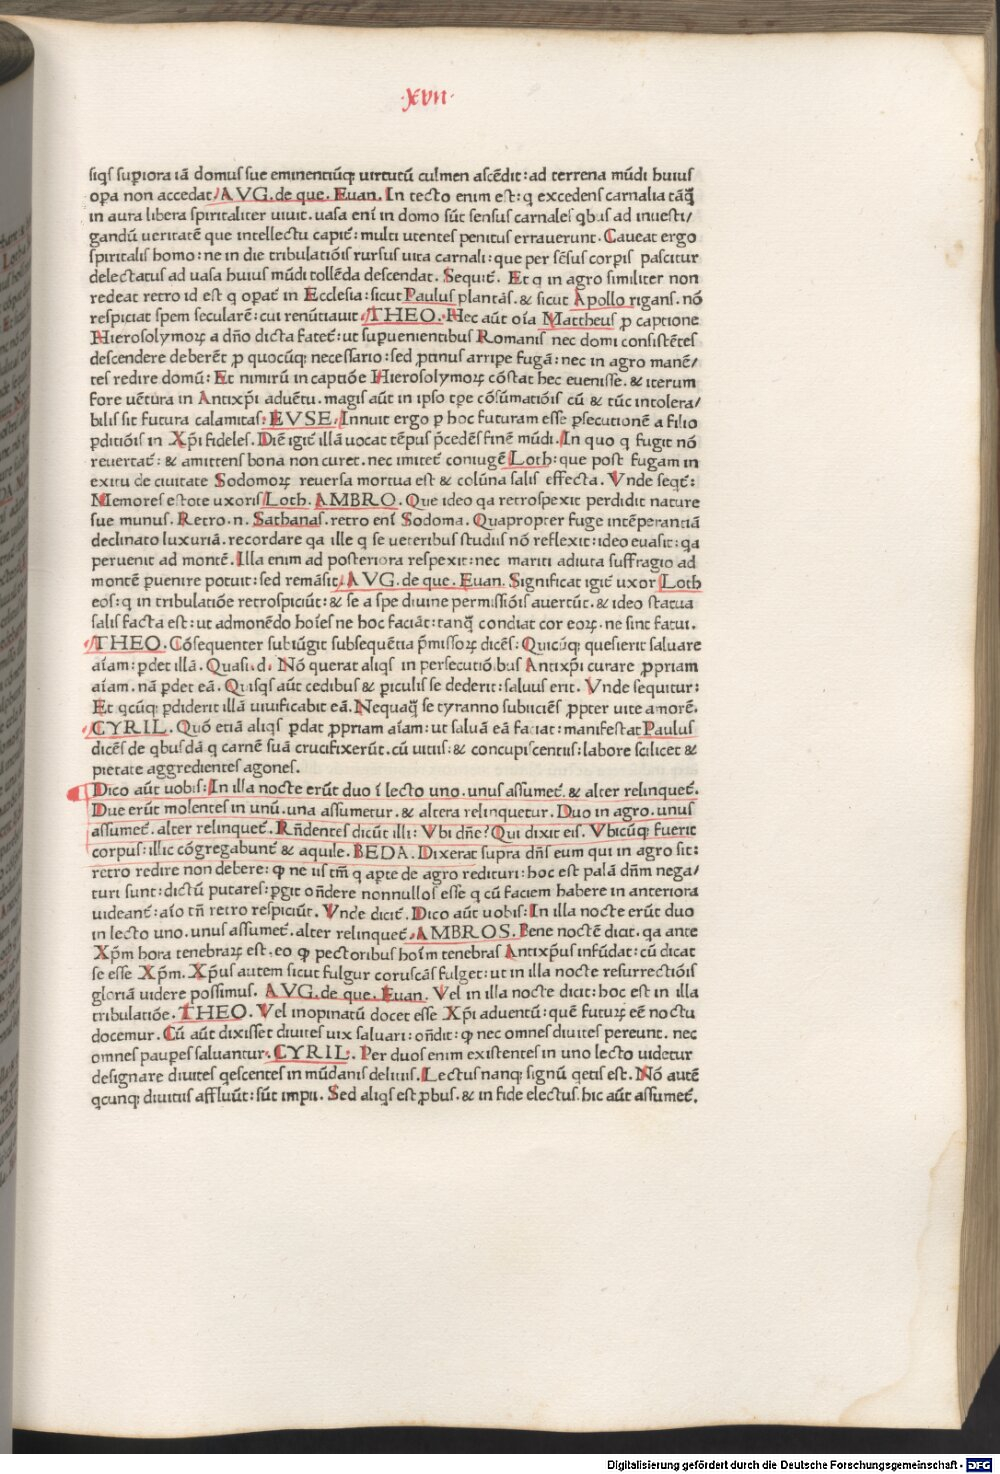 ·xvii·
siqs supiora iā domus sue eminentiūq; uirtutū culmen ascēdit: ad terrena mūdi huius
opa non accedat. AVG. de que. Euan. In tecto enim est: q excedens carnalia tāq̄
in aura libera spiritaliter uiuit. uasa eni in domo sūt sensus carnales qbus ad inuesti/
gandū ueritatē que intellectu capit: multi utentes penitus errauerunt. Caueat ergo
spiritalis homo: ne in die tribulatiōis rursus uita carnali: que per sēsus corpis pascitur
delectatus ad uasa huius mūdi tollēda descendat. Sequit. Et q in agro similiter non
redeat retro id est q opat in Ecclesia: sicut Paulus plantās. & sicut Apollo rigans. nō
respiciat spem secularē: cui renūtiauit. THEO. Hec aūt oīa Mattheus p captione
Hierosolymoꝝ a dño dicta fatet: ut supuenientibus Romanis nec domi consistētes
descendere deberēt p quocūq; necessario: sed ptinus arripe fugā: nec in agro manē/
tes redire domū: Et nimirū in captiōe Hierosolymoꝝ cōstat hec euenisse. & iterum
fore uētura in Antixp̄i aduētu. magis aūt in ipso tpe cōsūmatiōis cū & tūc intolera/
bilis sit futura calamitas: EVSE. Innuit ergo p hoc futuram esse psecutionē a filio
pditiōis in Xp̄i fideles. Diē igit illā uocat tēpus pcedēs finē mūdi. In quo q fugit nō
reuertat: & amittens bona non curet. nec imitet coniugē Loth: que post fugam in
exitu de ciuitate Sodomoꝝ reuersa mortua est & colūna salis effecta. Vnde seqt:
Memores estote uxoris Loth. AMBRO. Que ideo qa retrospexit perdidit nature
sue munus. Retro.n. Sathanas. retro eni Sodoma. Quapropter fuge intēperantiā
declinato luxuriā. recordare qa ille q se ueteribus studiis nō reflexit: ideo euasit: qa
peruenit ad montē. Illa enim ad posteriora respexit: nec mariti adiuta suffragio ad
montē puenire potuit: sed remāsit. AVG. de que. Euan. Significat igit uxor Loth
eos: q in tribulatiōe retrospiciūt: & se a spe diuine permissiōis auertūt. & ideo statua
salis facta est: ut admonēdo hoies ne hoc faciāt: tanq̄ condiat cor eoꝝ. ne sint fatui.
THEO. Cōsequenter subiūgit subsequētia pmissoꝝ dicēs: Quicūq; quesierit saluare
aīam: pdet illā. Quasi.d. Nō querat aliqs in persecutiōibus Antixp̄i curare ppriam
aīam. nā pdet eā. Quisqs aūt cedibus & piculis se dederit: saluus erit. Vnde sequitur:
Et qcūq; pdiderit illā uiuificabit eā. Nequaq̄ se tyranno subiiciēs ppter uite amorē.
CYRIL. Quō etiā aliqs pdat ppriam aīam: ut saluā eā faciat: manifestat Paulus
dicēs de qbusdā q carnē suā crucifixerūt. cū uitiis: & concupiscentiis: labore scilicet &
pietate aggredientes agones.
Dico aūt uobis: In illa nocte erūt duo ī lecto uno. unus assumet. & alter relinquet.
Due erūt molentes in unū. una assumetur. & altera relinquetur. Duo in agro. unus
assumet. alter relinquet. Rñdentes dicūt illi: Vbi dñe? Qui dixit eis. Vbicūq; fuerit
corpus: illic cōgregabunt & aquile. BEDA. Dixerat supra dñs eum qui in agro sit:
retro redire non debere: q ne iis tm̄ q apte de agro redituri: hoc est palā dñm nega/
turi sunt: dictū putares: pgit oñdere nonnullos esse q cū faciem habere in anteriora
uideant: aīo tñ retro respiciūt. Vnde dicit. Dico aūt uobis: In illa nocte erūt duo
in lecto uno. unus assumet. alter relinquet. AMBROS. Bene noctē dicit. qa ante
Xp̄m hora tenebraꝝ est. eo q pectoribus hoīm tenebras Antixp̄us infūdat: cū dicat
se esse Xp̄m. Xp̄us autem sicut fulgur coruscās fulget: ut in illa nocte resurrectiōis
gloriā uidere possimus. AVG. de que. Euan. Vel in illa nocte dicit: hoc est in illa
tribulatiōe. THEO. Vel inopinatū docet esse Xp̄i aduentū: quē futuꝝ eē noctu
docemur. Cū aūt dixisset diuites uix saluari: oñdit: q nec omnes diuites pereunt. nec
omnes paupes saluantur. CYRIL. Per duos enim existentes in uno lecto uidetur
designare diuites qescentes in mūdanis delitiis. Lectus nanq; signū qetis est. Nō autē
qcunq; diuitiis affluūt: sūt impii. Sed aliqs est pbus. & in fide electus. hic aūt assumet.
Digitalisierung gefördert durch die Deutsche Forschungsgemeinschaft - DFG